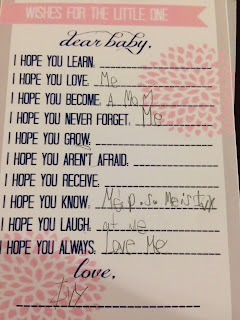 WISHES FOR THE LITTLE ONE
dear baby,
I HOPE YOU LEARN:
I HOPE YOU LOVE: Me
I HOPE YOU BECOME: A Mom
I HOPE YOU NEVER FORGET: Me
I HOPE YOU GROW:
I HOPE YOU AREN'T AFRAID:
I HOPE YOU RECEIVE:
I HOPE YOU KNOW: Me p.s. Me is Ivy
I HOPE YOU LAUGH: at me
I HOPE YOU ALWAYS: Love Me
love,
Ivy